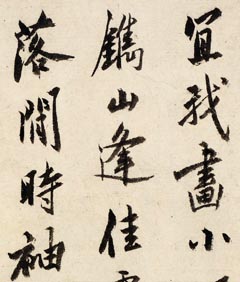 宜我畫小
鐫山逢佳
落閒時袖